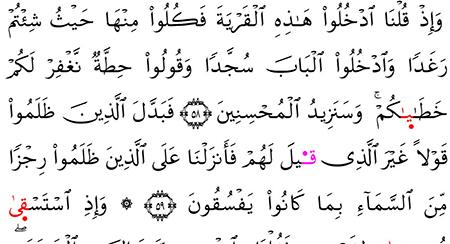 وَإِذْ قُلْنَا ٱدْخُلُوا۟ هَـٰذِهِ ٱلْقَرْيَةَ فَكُلُوا۟ مِنْهَا حَيْثُ شِئْتُمْ
رَغَدًا وَٱدْخُلُوا۟ ٱلْبَابَ سُجَّدًا وَقُولُوا۟ حِطَّةٌ نَّغْفِرْ لَكُمْ
خَطَـٰيَـٰكُمْ ۚ وَسَنَزِيدُ ٱلْمُحْسِنِينَ ﴿٥٨﴾ فَبَدَّلَ ٱلَّذِينَ ظَلَمُوا۟
قَوْلًا غَيْرَ ٱلَّذِى قِيلَ لَهُمْ فَأَنزَلْنَا عَلَى ٱلَّذِينَ ظَلَمُوا۟ رِجْزًا
مِّنَ ٱلسَّمَآءِ بِمَا كَانُوا۟ يَفْسُقُونَ ﴿٥٩﴾ ۞ وَإِذِ ٱسْتَسْقَىٰ